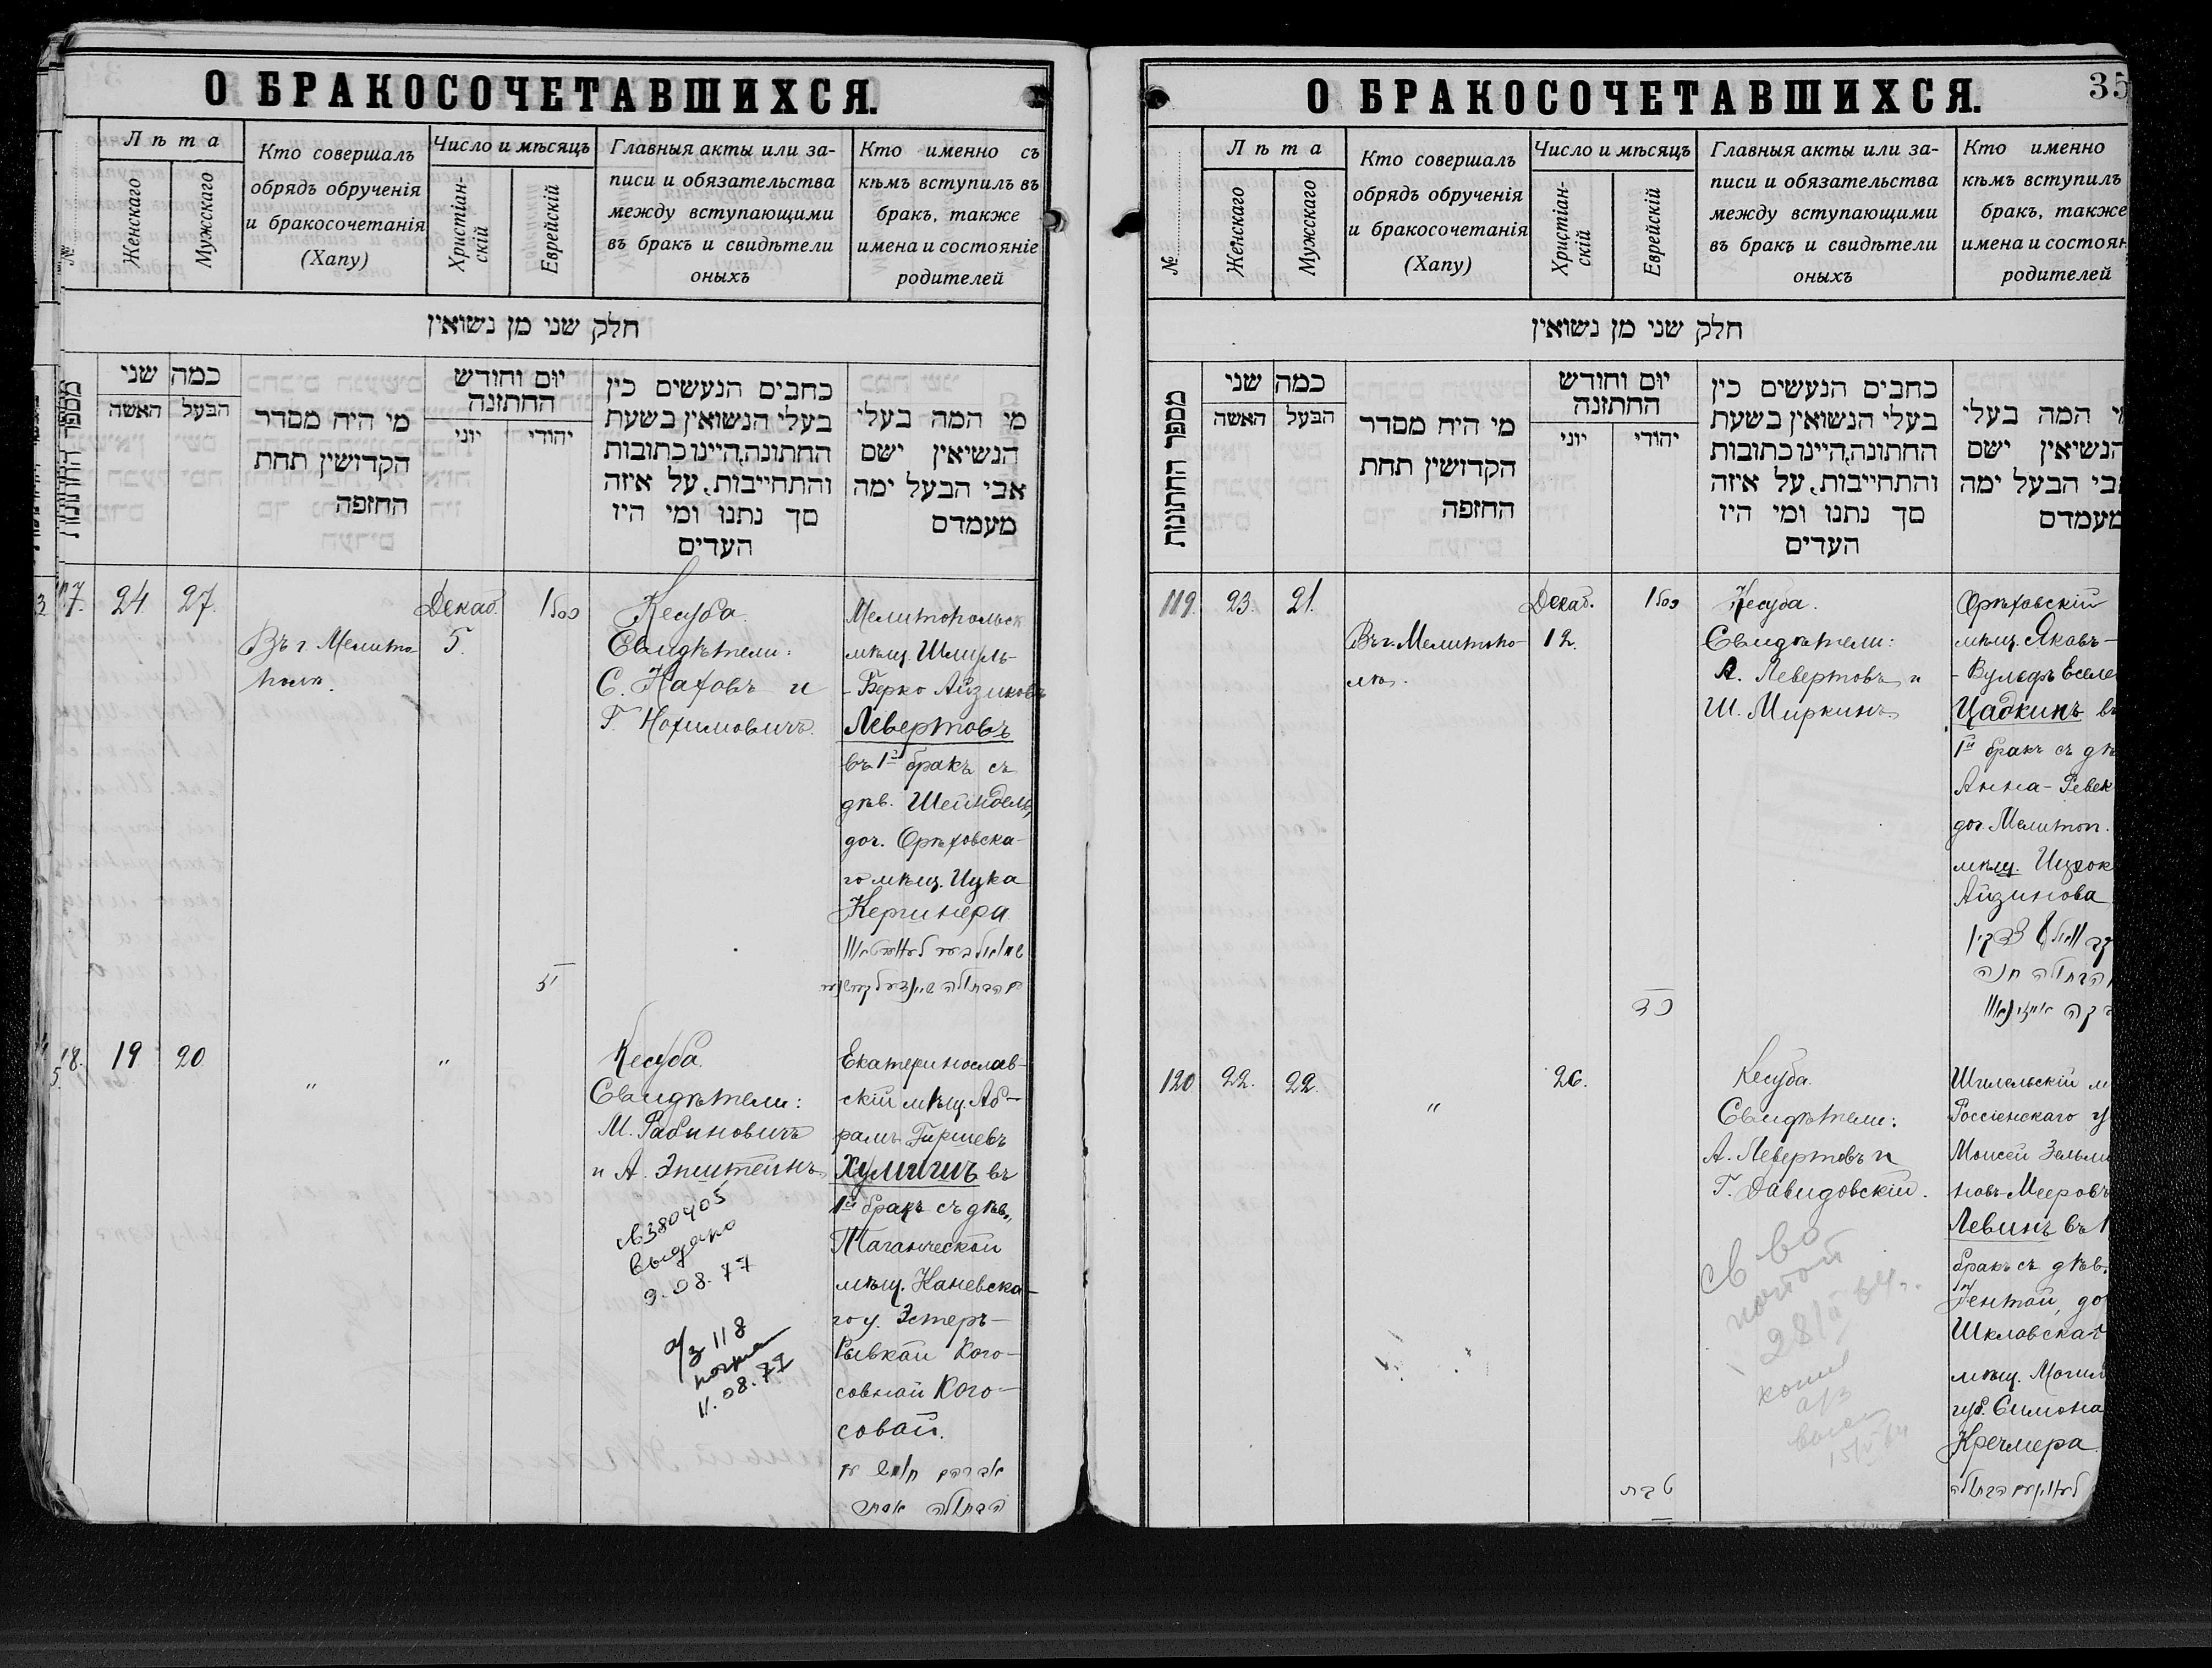 О БРАКОСОЧЕТАВШИХСЯ.
№
Лѣта
Женскаго
Мужскаго
Кто совершалъ
обрядъ обрученія
и бракосочетанія
(Хапу)
Число и мѣсяцъ
Христіан-
скій
Еврейскій
Главныя акты или за-
писи и обязательства
между вступающими
въ бракъ и свидѣтели
оныхъ
Кто именно съ
кѣмъ вступилъ въ
бракъ, также
имена и состояніе
родителей
חלק שני מן נשואין
מספר החתונות
כמה שני
האשה
הבעל
מי היה מסדר
הקדושין תחת
החזפה
יום וחודש
החתונה
יוני
יהודי
כחבים הנעשים כין
בעלי הנשואין בשעת
החתונה,היינו כתובות
והתחייבות, על איזה
סך נתנו ומי היו
העדים
מי המה בעלי
הנשיאין ישם
אבי הבעל ימה
מעמדם
7. 24. 27.
Въ г. Мелито-
полѣ.
Декаб.
5.
Кесуба.
Свидѣтели:
С. Каховъ и
Г. Нохимовичъ.
Мелитопольск
мѣщ. Шмуль-
-Берко Айзиковъ
Левертовъ
въ 1й бракъ съ
дѣв. Шейндель,
доч. Орѣховска-
го мѣщ. Ицка
Кергинера
יז
18. 19 20.
"
"
Кесуба.
Свидѣтели:
М. Рабиновичъ
и А. Эпштейнъ
№380405
выдано
9.08.77
а/з 118
11.08.77
Екатеринослав-
скій мѣщ. Аб-
рамъ Гиршевъ
Хулигинъ въ
1й бракъ съ дѣв.,
Таганческой
мѣщ. Каневска-
го у. Эстеръ-
Рывкой Кого-
совной Кого-
совой.
О БРАКОСОЧЕТАВШИХСЯ.
35
№
Лѣта
Женскаго
Мужскаго
Кто совершалъ
обрядъ обрученія
и бракосочетанія
(Хапу)
Число и мѣсяцъ
Христіан-
скій
Еврейскій
Главныя акты или за-
писи и обязательства
между вступающими
въ бракъ и свидѣтели
оныхъ
Кто именно
кѣмъ вступилъ
бракъ, также
имена и состоян
родителей
חלק שני מן נשואין
מספר החתונות
כמה שני
האשה
הבעל
מי היה מסדר
הקדושין תחת
החזפה
יום וחודש
החתונה
יוני
יהודי
כחבים הנעשים כין
בעלי הנשואין בשעת
החתונה,היינו כתובות
והתחייבות, על איזה
סך נתנו ומי היו
העדים
המה בעלי
הנשיאין ישם
אבי הבעל ימה
מעמדם
119. 23. 21.
Въ г. Мелитопо-
лѣ.
Декаб.
12.
Кесуба.
Свидѣтели:
А. Левертовъ и
Ш. Миркинъ
Орѣховскій
мѣщ. Яковъ-
-Вульфъ Еселе
Цадкинъ въ
1й бракъ съ дѣ
Анна-Ревек
доч. Мелитоп.
мѣщ. Ицхок
Айзинова
כד
120 22. 22.
"
26.
טבת
Кесуба.
Свидѣтели:
А. Левертовъ и
Г. Давидовскій.
св во
28/II 64г.
Шилельскій м
Россіенскаго у
Моисей Зельма
новъ-Мееровъ
Левинъ въ 1
бракъ съ дѣв.
Гентой, до
Шкловскаг
мѣщ. Могил
губ. Симона
Кречмера.